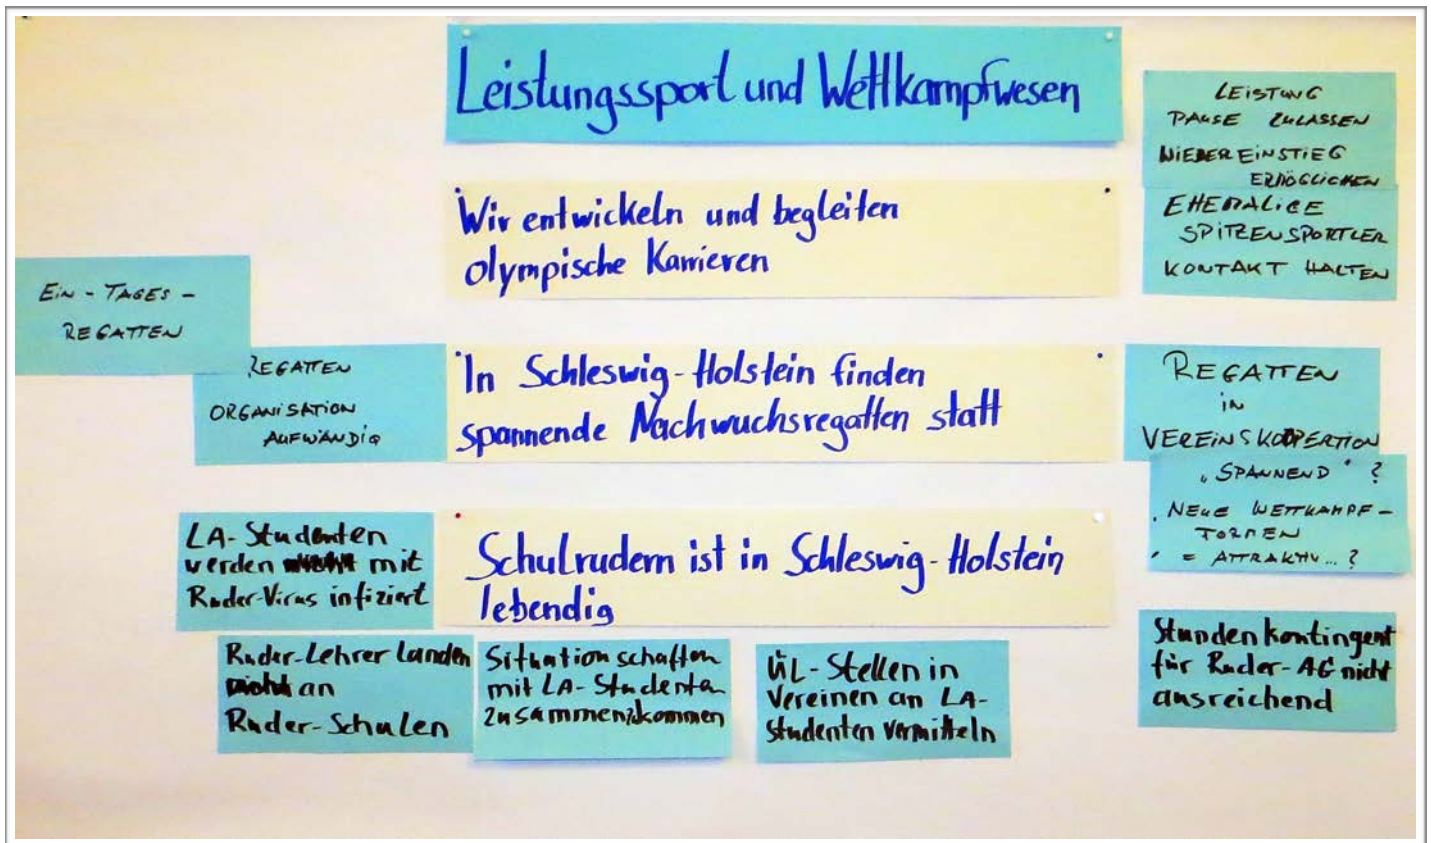 Leistungssport und Wettkampfwesen
LEISTUNG
PAUSE ZULASSEN
WIEDEREINSTIEG
ERMÖGLICHEN
Wir entwickeln und begleiten
olympische Karrieren
EHEMALIGE
SPITZENSPORTLER
KONTAKT HALTEN
EIN-TAGES-
REGATTEN
REGATTEN
ORGANISATION
AUFWÄNDIG
In Schleswig-Holstein finden
spannende Nachwuchsregatten statt
REGATTEN
IN
VEREINSKOOPERTION
"SPANNEND" ?
NEUE WETTKAMPF-
FORMEN
= ATTRAKTIV...?
LA-Studenten
werden mit
Ruder-Virus infiziert
Schulrudern ist in Schleswig-Holstein
lebendig
Ruder-Lehrer landen
an
Ruder-Schulen
Situation schaffen
mit LA-Studenten
zusammenzukommen
ÜL-Stellen in
Vereinen an LA-
Studenten vermitteln
Stundenkontingent
für Ruder-AG nicht
ausreichend